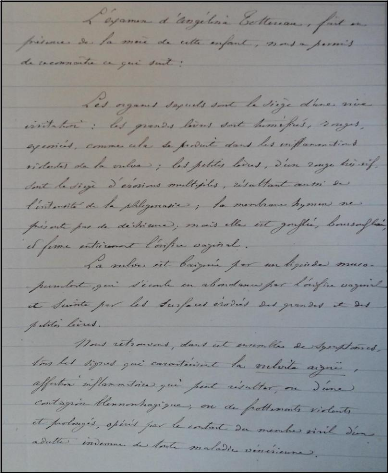 L'examen d'Angélina Cottereau, fait en
présence de la mère de cette enfant, nous a permis
de reconnaître ce qui suit :
Les organes sexuels sont le siège d'une vive
irritation ; les grandes lèvres sont tuméfiées, rouges,
comme cela se produit dans les inflammations
violentes de la vulve ; les petites lèvres, d'un rouge très vif,
sont le siège d'érosions multiples, résultant aussi de
l'intensité de la phlegmasie ; la membrane hymen ne
présente pas de déchirure, mais elle est gonflée, boursouflée,
et ferme entièrement l'orifice vaginal.
La vulve est baignée par un liquide muco-
purulent qui s'écoule en abondance par l'orifice vaginal
et suinte par les surfaces érodées des grandes et des
petites lèvres.
Nous retrouvons, dans cet ensemble de symptômes,
tous les signes qui caractérisent la vulvite aiguë,
affection inflammatoire qui peut résulter, ou d'une
contagion blennorrhagique, ou de frottements violents
et prolongés, opérés par le contact du membre viril d'un
adulte indemne de toute maladie vénérienne.